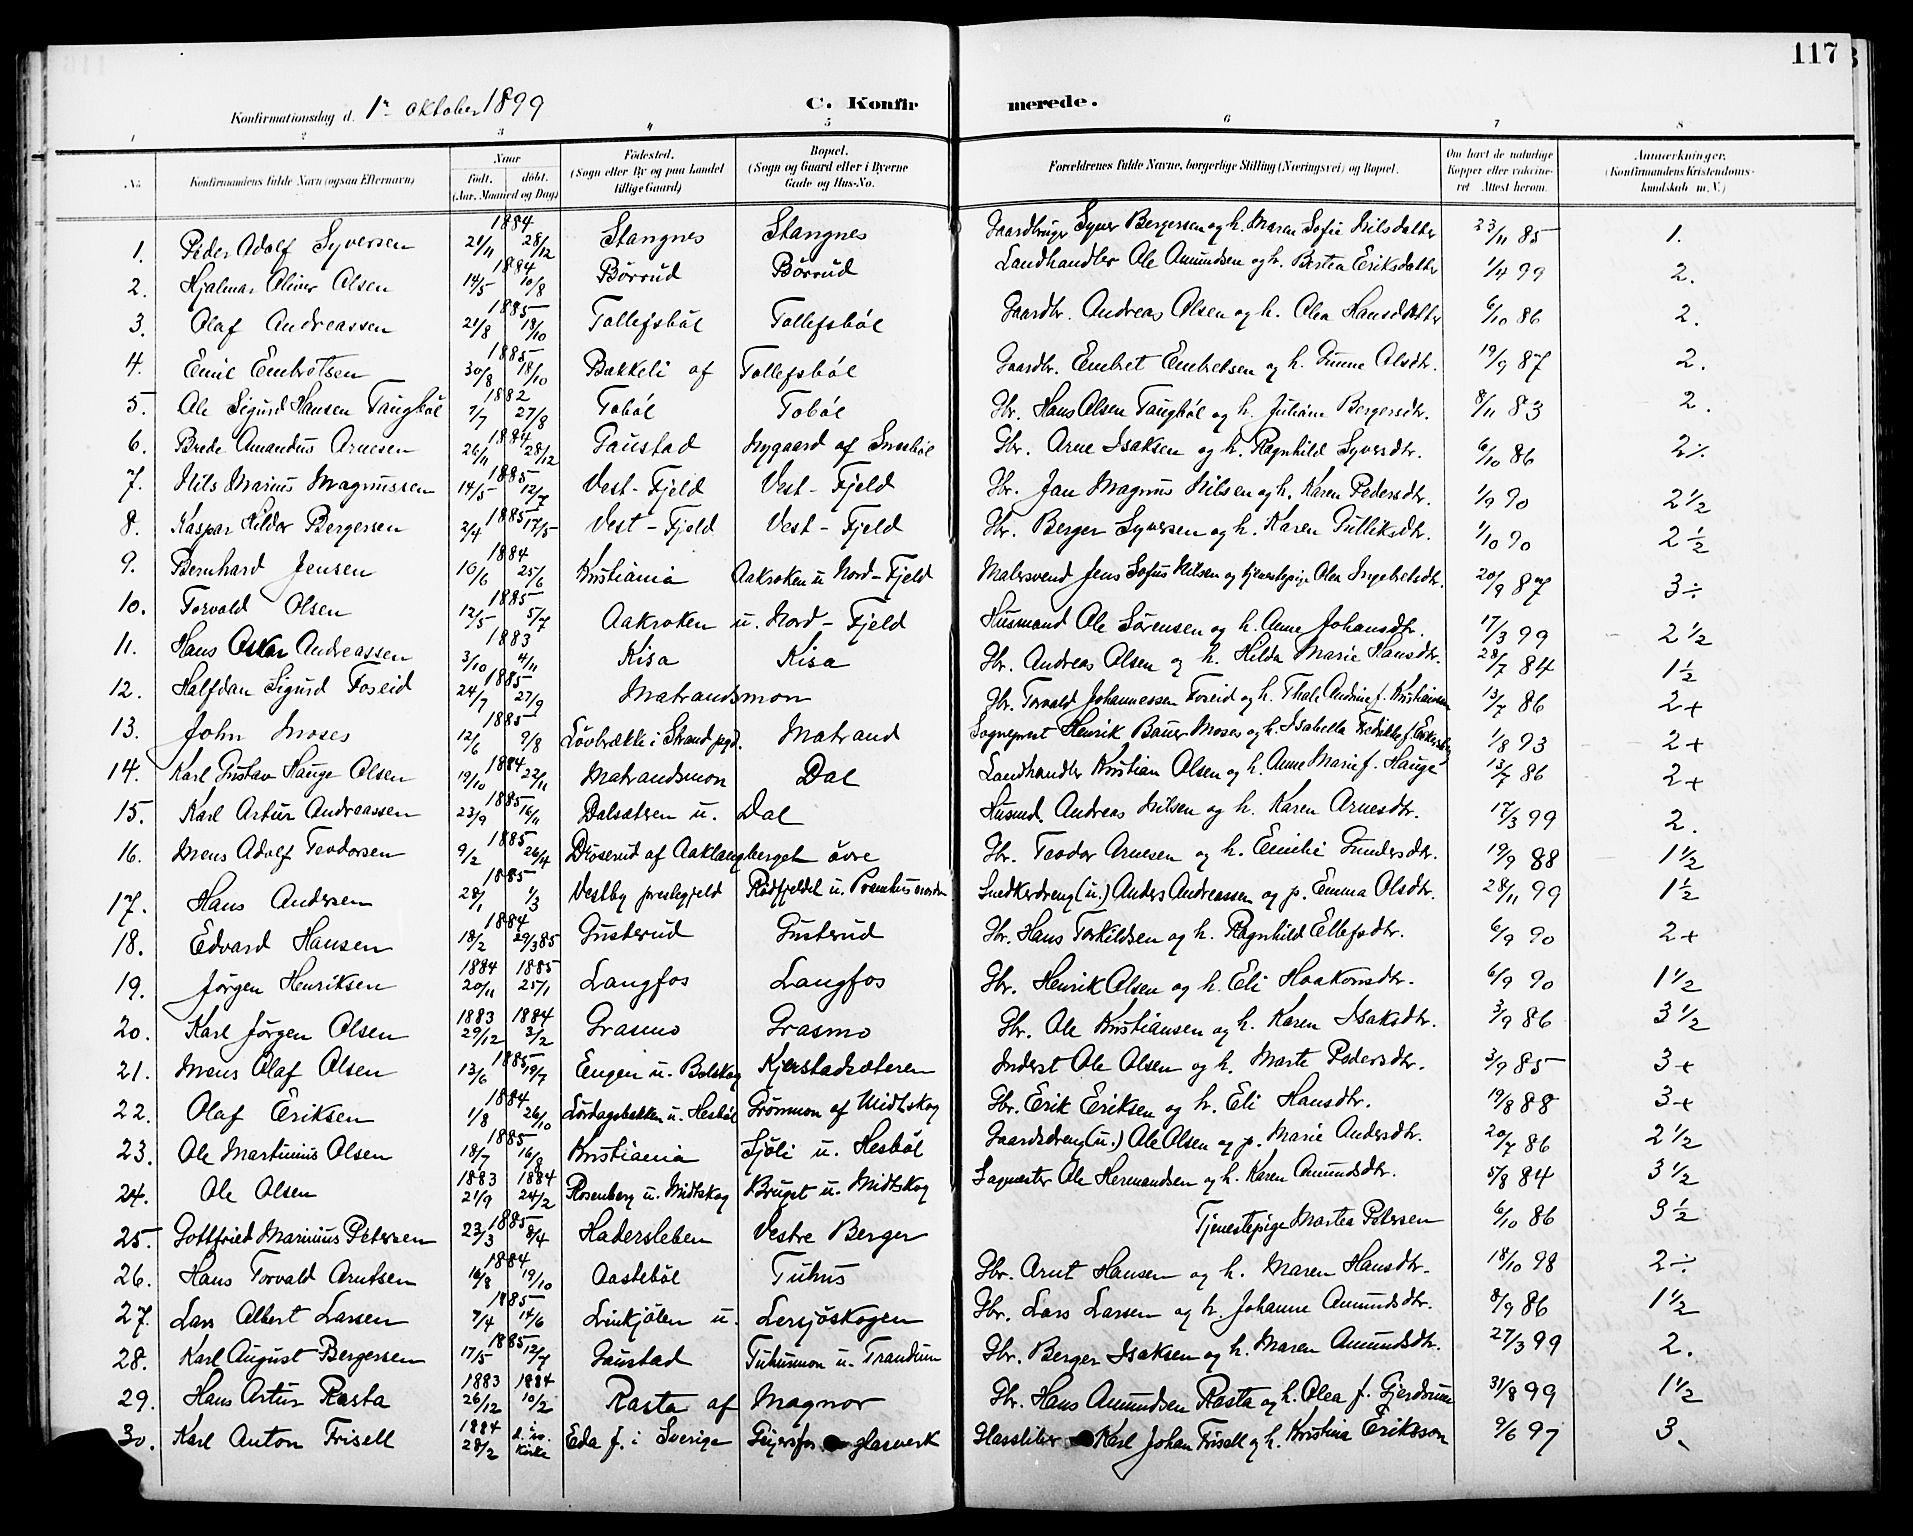 117
Konfirmationsdag d. 1ste oktober 1899 C. Konfirmerede.
1 2 3 4 5 6 7 8
No. Konfirmandens fulde Navn (ogsaa Efternavn) Naar Født. døbt. (Aar, Maaned og Dag) Fødested. (Sogn eller By og paa Landet tillige Gaard) Bopæl. (Sogn og Gaard eller i Byerne Gade og Hus-No. Forældrenes fulde Navne, borgerlige Stilling (Næringsvei) og Bopæl. Om havt de naturlige Kopper eller vakcineret Attest herom. Anmærkninger. (Konfirmandens Kristendomskundskab m. V.)
1. Peder Adolf Syversen 1884 21/11 28/12 Stangnes Stangnes Gaardbruger Syver Bergersen og h. Maren Sofie Nilsdatter 23/11 85 1.
2. Hjalmar Oliver Olsen 1884 14/5 10/8 Børrud Børrud Landhandler Ole Amundsen og h. Bertea Eriksdatter 1/4 99 2.
3. Olaf Andreassen 1885 21/8 18/10 Tollefsbøl Tollefsbøl Gaardbr. Andreas Olsen og h. Olea Hansdatter 6/10 86 2.
4. Emil Embretsen 1885 30/8 18/10 Bakkeli af Tollefsbøl Gaardbr. Embret Embretsen og h. Gunne Olsdtr. 19/9 87 2.
5. Ole Sigurd Hansen Taugbøl 1882 7/7 27/8 Tobøl Tobøl Gbr. Hans Olsen Taugbøl og h. Juliane Bergersdtr. 8/11 83 2.
6. Brede Amandus Arnesen 1884 26/11 28/12 Gaustad Nygaard af Smebøl Gbr. Arne Isaksen og h. Ragnhild Syversdtr. 6/10 86 2÷
7. Nils Marius Magnussen 1885 14/5 12/7 Vest-Fjeld Vest-Fjeld Gbr. Jan Magnus Nilsen og h. Karen Pedersdtr. 1/9 90 2 1/2
8. Kaspar Hilder Bergersen 1885 2/4 17/5 Vest-Fjeld Vest-Fjeld Gbr. Berger Syversen og h. Karen Gulliksdtr. 1/10 90 2 1/2
9. Bernhard Jensen 1884 16/6 25/6 Kristiania Aakroken u. Nord-Fjeld Malersvend Jens Sofus Nilsen og tjenestepige Olea Ingebretsdtr. 20/9 87 3÷
10. Torvald Olsen 1885 12/5 5/7 Aakroken u. Nord-Fjeld Husmand Ole Sørensen og h. Anne Johansdtr. 17/3 99 2 1/2
11. Hans Oskar Andreassen 1883 3/10 4/11 Kisa Kisa Gbr. Andreas Olsen og h. Hilda Marie Hansdtr. 28/7 84 1 1/2
12. Halfdan Sigurd Foseid 1885 24/7 27/9 Matrandsmon Gbr. Torvald Johannessen Foseid og h. Thale Andrine f. Kristiansen 13/7 86 2+
13. John Moses 1885 12/6 9/8 Løvbrække i Strand pgd. Matrand Sogneprest Henrik Bauer Moses og h. Isabella 1/8 93 2+
14. Karl Gustav Hauge Olsen 1884 19/10 22/11 Matrandsmon Dal Landhandler Kristian Olsen og h. Anne Marie f. Hauge 13/7 86 2+
15. Karl Artur Andreassen 1885 23/9 16/11 Dalsætren u. Dal Husmd. Andreas Nilsen og h. Karen Arnesdtr. 17/3 99 2.
16. Mens Adolf Teodorsen 1885 9/2 26/4 Diserud af Aaklangberget øvre Gbr. Teodor Arnesen og h. Emilie Gundersdtr. 19/9 88 1 1/2
17. Hans Andersen 1885 28/1 1/3 Vestby prestegjeld Rødfjeldet u. Snedkerdreng (u.) Anders Andreassen og p. Emma Olsdtr. 28/11 99 1 1/2
18. Edvard Hansen 1884 18/2 29/3 85 Gusterud Gusterud Gbr. Hans Torkildsen og h. Ragnhild Ellefsdtr. 6/9 90 2+
19. Jørgen Henriksen 1884 20/11 1885 25/1 Langfos Langfos Gbr. Henrik Olsen og h. Eli Haakonsdtr. 6/9 90 1 1/2
20. Karl Jørgen Olsen 1883 29/12 1884 3/2 Grasmo Grasmo Gbr. Ole Kristiansen og h. Karen Isaksdtr. 3/9 86 3 1/2
21. Mens Olaf Olsen 1885 13/6 19/7 Engen u. Bolskog Kjerstadsæteren Inderst Ole Olsen og h. Marte Pedersdtr. 3/9 85 3+
22. Olaf Eriksen 1884 1/8 26/10 Lørdagsbakken u. Hesbøl Grønmon af Midtskog Gbr. Erik Eriksen og h. Eli Hansdtr. 19/8 88 3+
23. Ole Martinius Olsen 1885 18/7 16/8 Kristiania Sjøli u. Hesbøl Gaardsdreng (u.) Ole Olsen og p. Marie Andersdtr. 20/7 86 2 1/2
24. Ole Olsen 1883 21/9 1884 24/2 Rosenberg u. Midtskog Bruget u. Midtskog Sagmester Ole Hermandsen og h. Karen Amundsdtr. 5/8 84 3 1/2
25. Gottfried Marinius Petersen 1885 23/3 8/4 Hadersleben Vestre Berger Tjenestepige Martea Petersen 6/10 86 3 1/2
26. Hans Torvald Arntsen 1884 16/8 19/10 Aastebøl Tuhus Gbr. Arnt Hansen og h. Maren Hansdtr. 18/10 98 2÷
27. Lars Albert Larsen 1885 7/4 14/6 Linkjølen u. Lersjøskogen Gbr. Lars Larsen og h. Johanne Amundsdtr. 8/9 86 1 1/2
28. Karl August Bergersen 1885 17/5 12/7 Gaustad Tuhusmon u. Trandum Gbr. Berger Isaksen og h. Maren Amundsdtr. 27/3 99 2.
29. Hans Artur Rasta 1883 26/12 1884 10/2 Rasta af Magnor Gbr. Hans Amundsen Rasta og h. Olea f. Gjerdrum 31/8 99 1 1/2
30. Karl Anton Frisell 1884 28/2 kirke Eda f. i Sverige Gejersfors glasverk Glassliber Karl Johan Frisell og h. Kristina Eriksson 9/6 97 3.